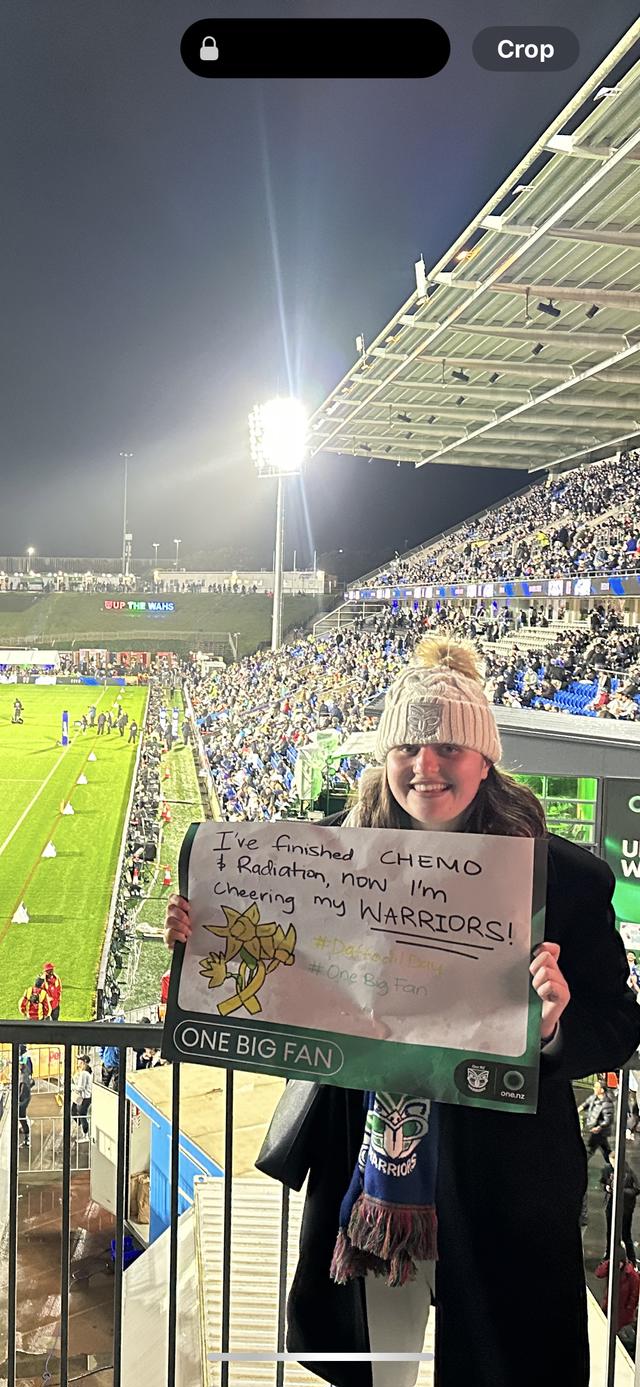 Crop
UP THE WAHS
I've finished CHEMO
& Radiation, now I'm
cheering my WARRIORS!
#Daffodil Day
#One Big Fan
ONE BIG FAN
one.nz
WARRIORS
U
W